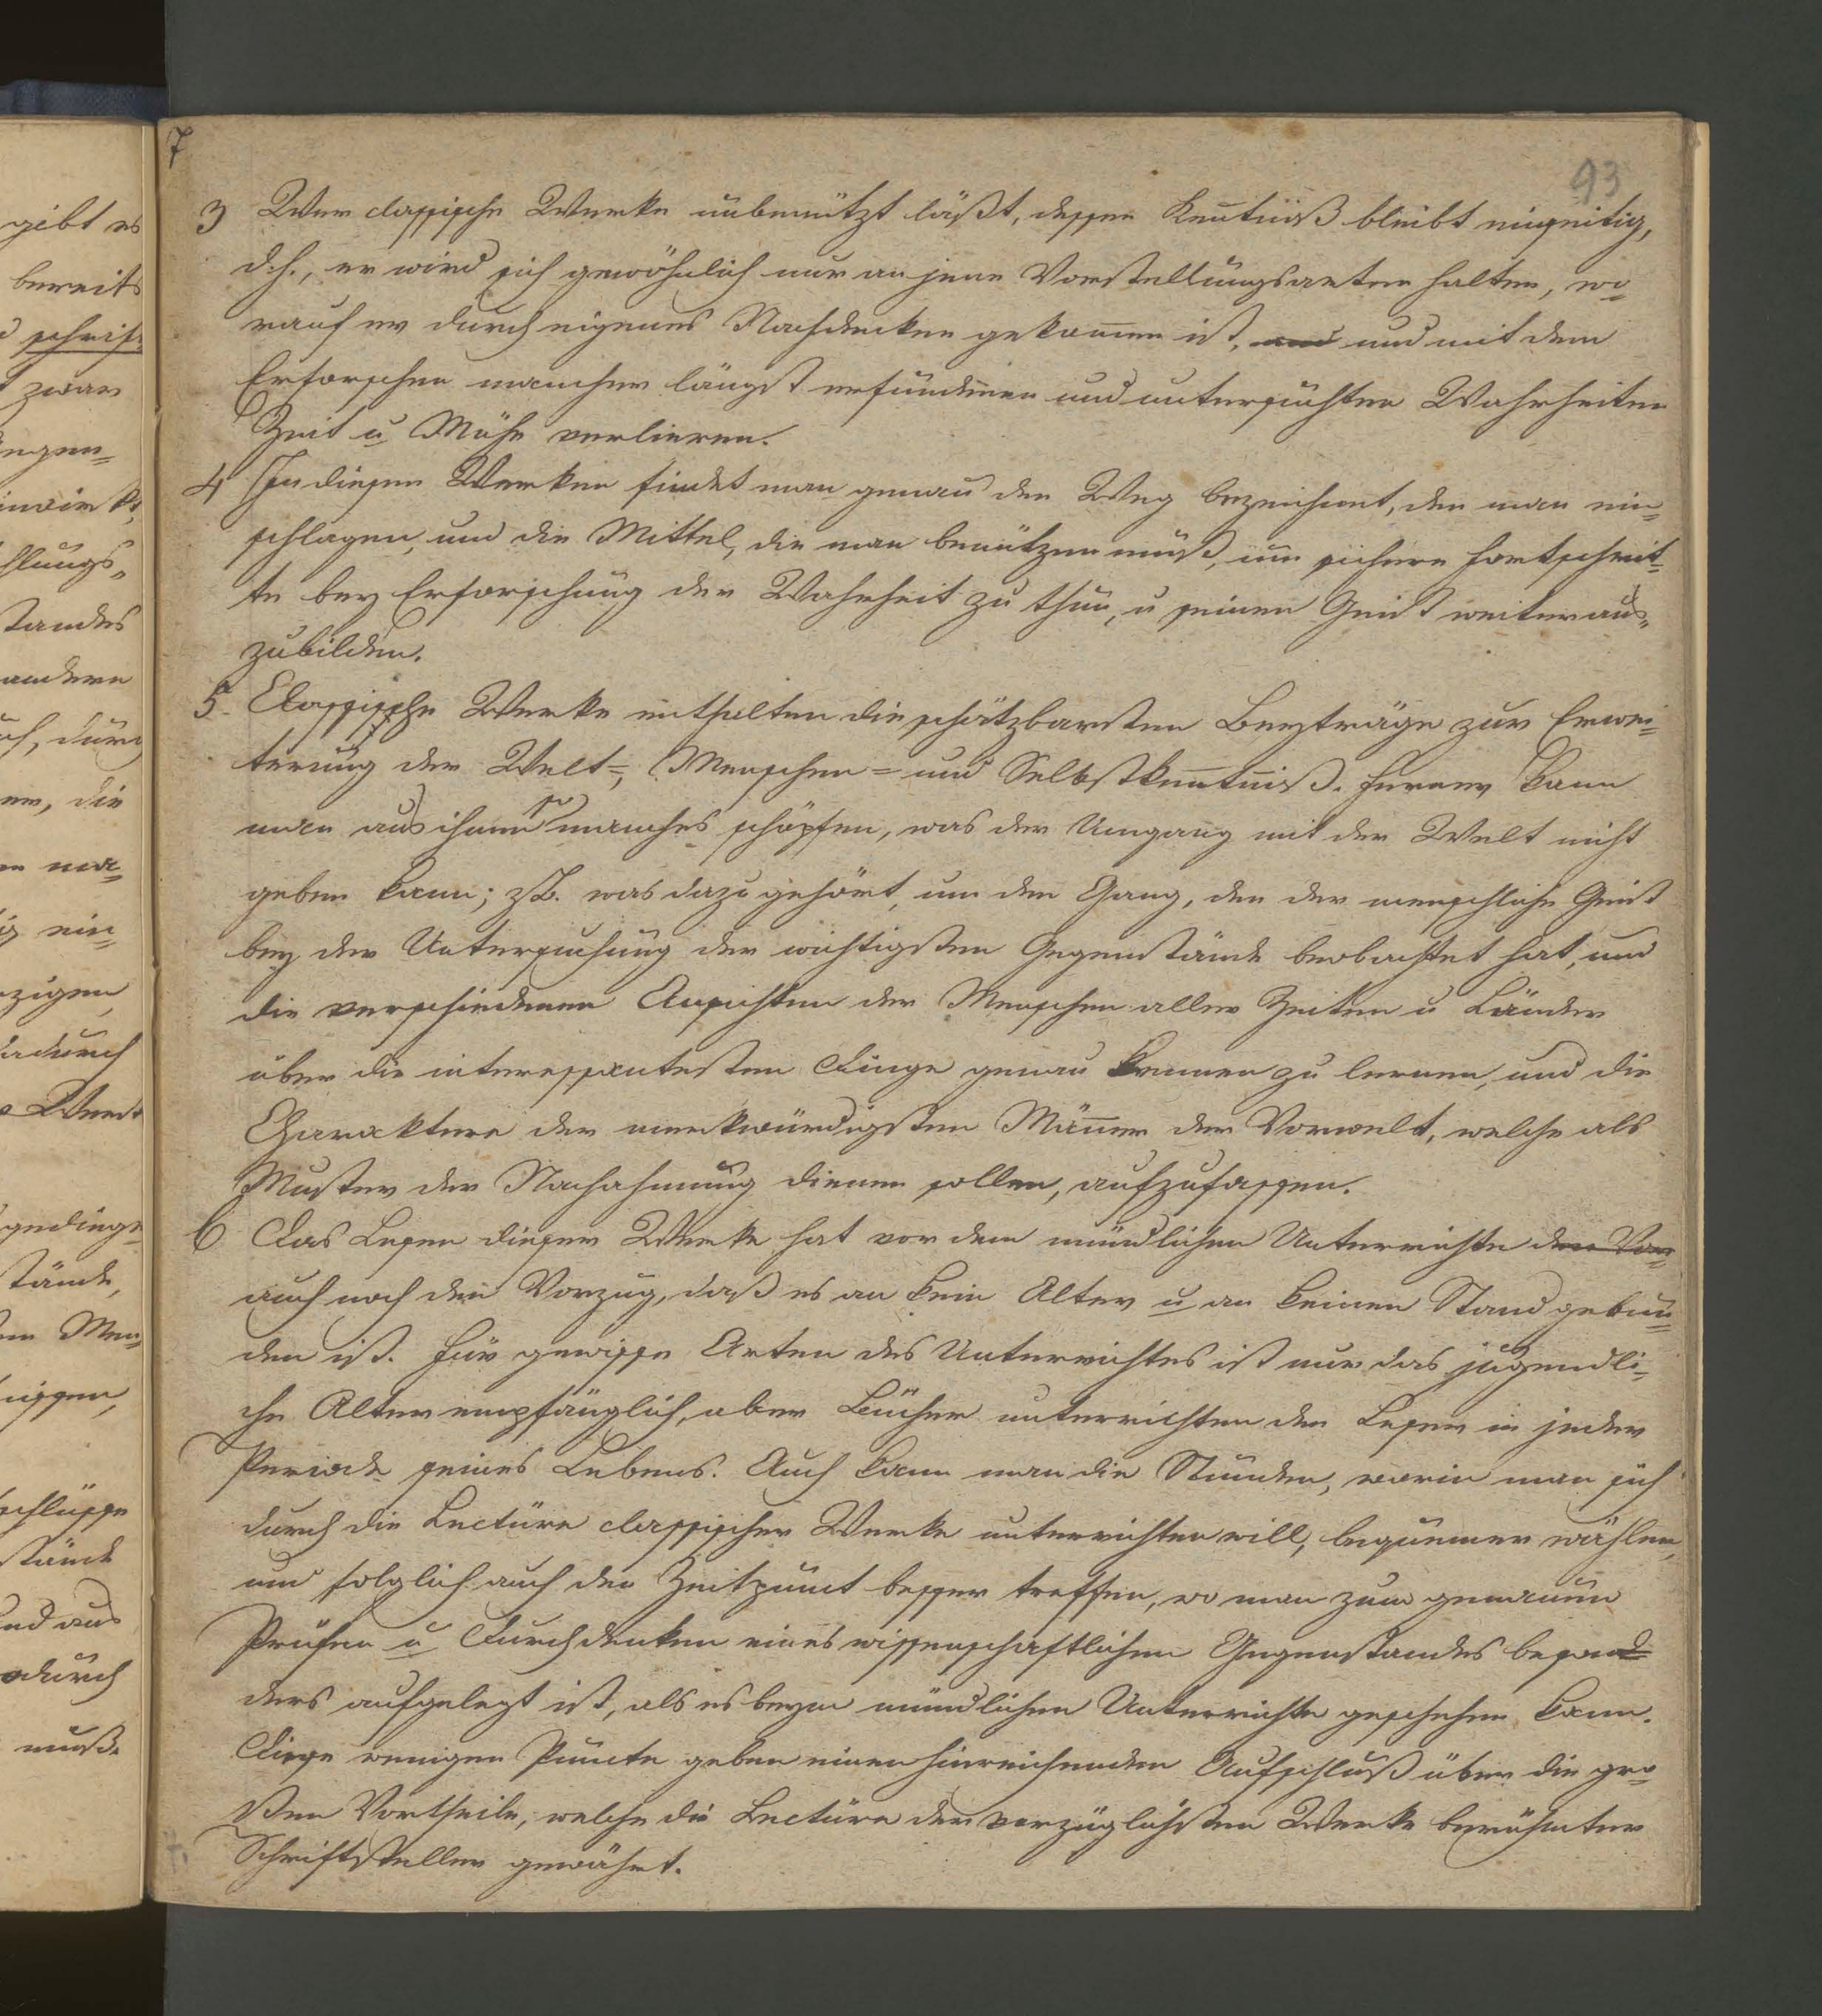 7
93
3 Wer classische Werke unbenützt läßt, dessen Kentniß bleibt einseitig,
d.h., er wird sich gewöhnlich nur an jene Vorstellungsarten halten, wo¬
rauf er durch eigenes Nachdenken gekomen ist, und und mit dem
Erforschen mancher längst erfundenen und untersuchten Wahrheiten
Zeit u Mühe verlieren.
4 In diesen Werken findet man genau den Weg bezeichnet, den man ein¬
schlagen, und die Mittel, die man benützen muß, um sichere Fortschrit¬
te bey Erforschung der Wahrheit zu thun, u seinen Geist weiter aus¬
zubilden.
5. Classische Werke enthalten die schätzbarsten Beyträge zur Erwei¬
terung der Welt=, Menschen= und Selbstkentniß. Ferner kann
man aus ihnen so manches schöpfen, was der Umgang mit der Welt nicht
geben kann; z.B. was dazu gehört, um den Gang, den der menschliche Geist
bey der Untersuchung der wichtigsten Gegenstände beobachtet hat, und
die verschiedenen Ansichten der Menschen aller Zeiten u Länder
über die interessantesten Dinge genau kennen zu lernen, und die
Charaktere der merkwürdigsten Mäner der Vorwelt, welche als
Muster der Nachahmung dienen sollen, aufzufassen.
6 Das Lesen dieser Werke hat vor dem mündlichen Unterrichte den Vor¬
auch noch den Vorzug, daß es an kein Alter u an keinen Stand gebun¬
den ist. Für gewisse Arten des Unterrichtes ist nur das jugendli¬
che Alter empfänglich, aber Bücher unterrichten den Leser in jeder
Periode seines Lebens. Auch kann man die Stunden, worin man sich
durch die Lectüre classischer Werke unterrichten will, bequemer wählen,
und folglich auch den Zeitpunct besser treffen, wo man zum genauen
Prüfen u Durchdenken eines wissenschaftlichen Gegenstandes beson¬
ders aufgelegt ist, als es beym mündlichen Unterrichte geschehen kann.
Diese wenigen Puncte geben einen hinreichenden Aufschluß über die gro¬
ßen Vortheile, welche die Lectüre der vorzüglichsten Werke berühmter
Schriftsteller gewährt.